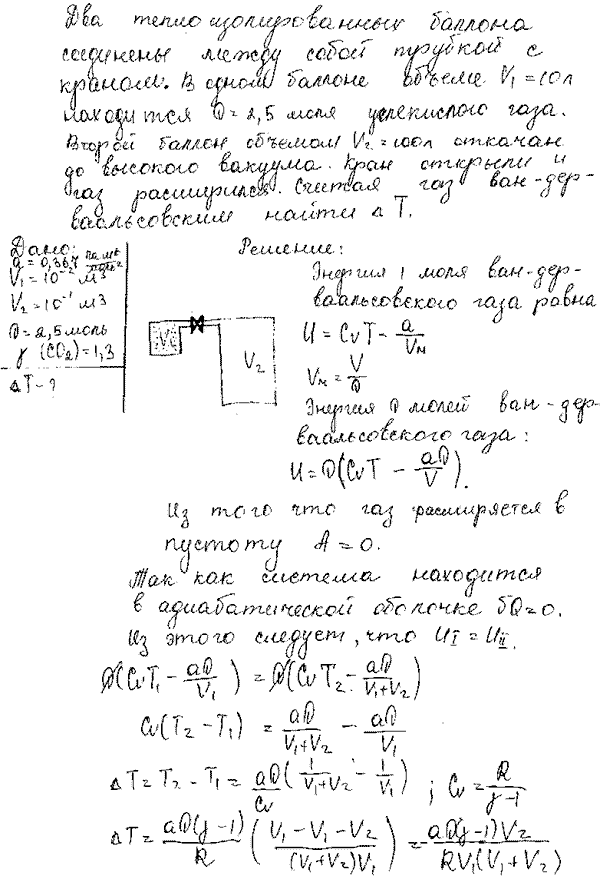 Два теплоизолированных баллона
соединены между собой трубкой с
краном. В одном баллоне объеме V₁ = 10л
находится ν = 2,5 моля углекислого газа.
Второй баллон объемом V₂ = 100л откачан
до высокого вакуума. Кран открыли и
газ расширился. Считая газ ван-дер-
ваальсовским найти ΔT.
Дано:
a = 0,367 Па м⁶/моль²
V₁ = 10⁻² м³
V₂ = 10⁻¹ м³
ν = 2,5 моль
γ (CO₂) = 1,3
ΔT - ?
Решение:
V₁
V₂
Энергия 1 моля ван-дер-
ваальсовского газа равна
U = CvT - a/Vм
Vм = V/ν
Энергия ν молей ван-дер-
ваальсовского газа:
U = ν(CvT - aν/V).
Из того что газ расширяется в
пустоту A = 0.
Так как система находится
в адиабатической оболочке δQ = 0.
Из этого следует, что U_I = U_II.
ν(CvT₁ - aν/V₁) = ν(CvT₂ - aν/(V₁+V₂))
Cv(T₂ - T₁) = aν/(V₁+V₂) - aν/V₁
ΔT = T₂ - T₁ = aν/Cv (1/(V₁+V₂) - 1/V₁) ; Cv = R/(γ-1)
ΔT = aν(γ-1)/R ((V₁ - V₁ - V₂)/((V₁+V₂)V₁)) = -aν(γ-1)V₂/(RV₁(V₁+V₂))